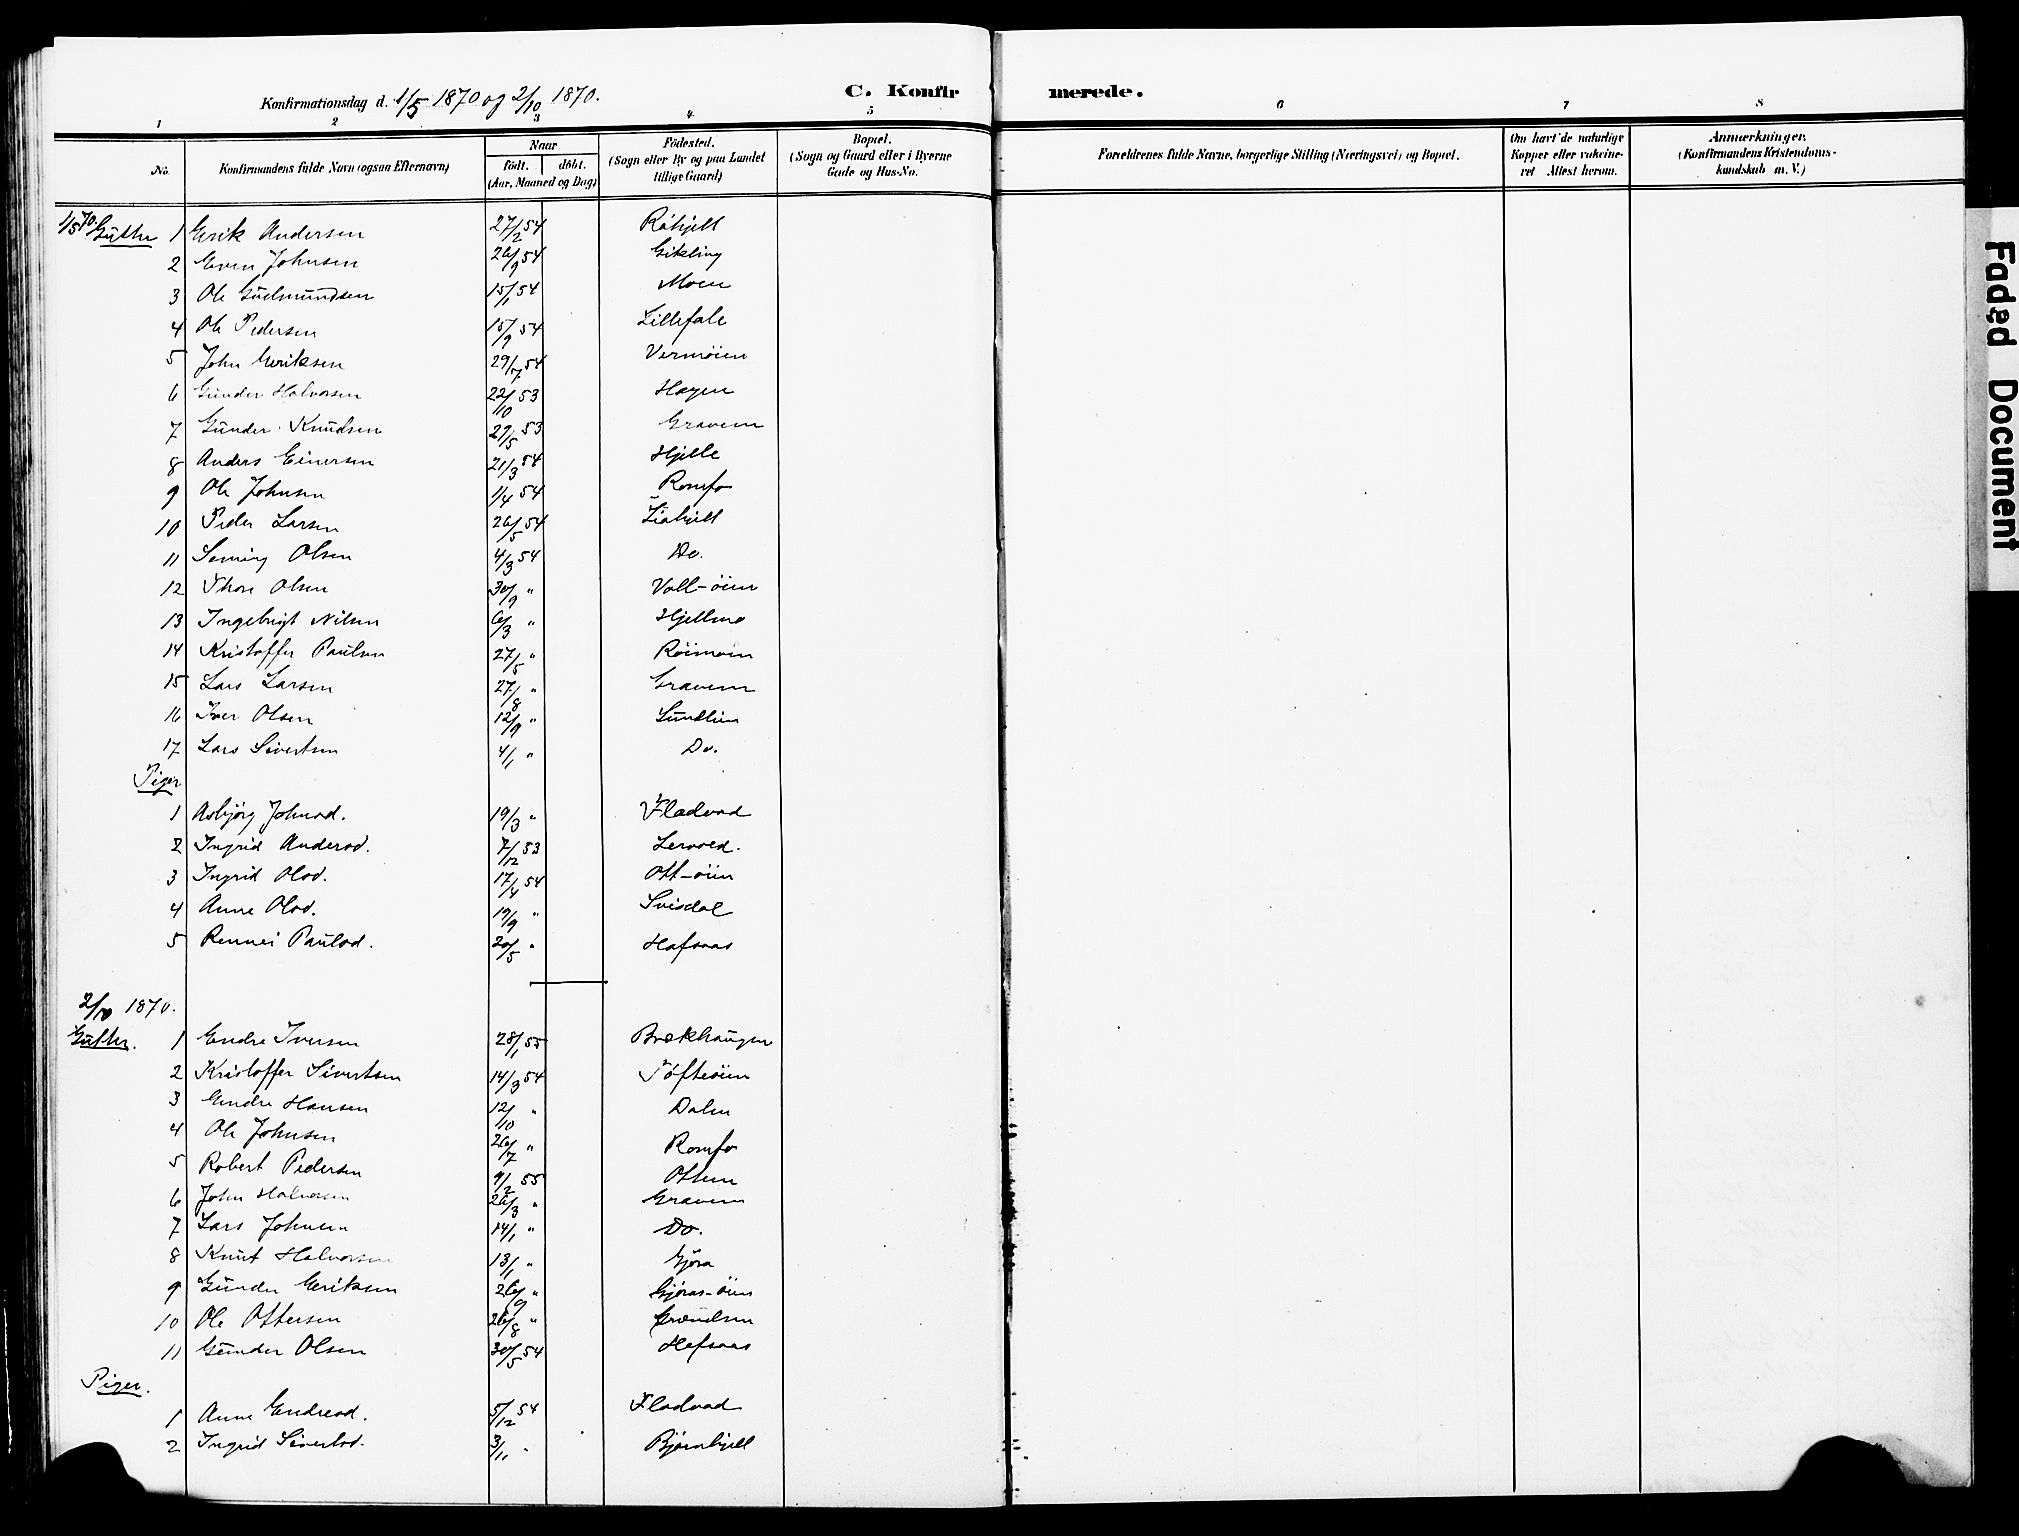 Konfirmationsdag d. 1/5 1870 og 2/10 1870.
C. Konfirmerede.
1 2 3 4 5 6 7 8
No.
Konfirmandens fulde Navn (ogsaa Efternavn)
Naar
født. døbt.
(Aar, Maaned og Dag)
Fødested.
(Sogn eller By og paa Landet
tillige Gaard)
Bopæl.
(Sogn og Gaard eller i Byerne
Gade og Hus-No.
Forældrenes fulde Navne, borgerlige Stilling (Næringsvei) og Bopæl.
Om havt de naturlige
Kopper eller vakcine-
ret Attest herom.
Anmærkninger.
(Konfirmandens Kristendoms-
kundskab m. V.)
1/5 70. Gutter 1 Erik Andersen 27/2 54 Røkjell
2 Even Johnsen 26/9 54 Gikling
3 Ole Gudmundsen 15/1 54 Moen
4 Ole Pedersen 15/9 54 Lillefale
5 John Eriksen 29/7 54 Vermøien
6 Gunder Halvorsen 22/10 53 Hagen
7 Gunder Knudsen 29/5 53 Gravem
8 Anders Einersen 21/3 54 Hjelle
9 Ole Johnsen 1/4 54 Romfo
10 Peder Larsen 26/5 54 Liahjell
11 Seming Olsen 4/3 54 Do.
12 Thore Olsen 30/9 " Voll-øien
13 Ingebrigt Nilsen 6/3 " Hjellmo
14 Kristoffer Paulsen 27/5 " Røimoen
15 Lars Larsen 27/8 " Gravem
16 Iver Olsen 12/9 " Sundlien
17 Lars Sivertsen 4/1 " Do.
Piger
1 Asbjørg Johnsd. 19/3 " Fladvad
2 Ingrid Andersd. 7/12 53 Lervoed.
3 Ingrid Olsd. 17/4 54 Ott-øien
4 Anne Olsd. 19/9 " Svisdal
5 Rennei Paulsd. 20/5 " Hafsaas
2/10 1870.
Gutter. 1 Endre Iversen 28/1 55 Brækhaugen
2 Kristoffer Sivertsen 14/3 54 Tøfteøien
3 Endre Hansen 12/10 " Dalen
4 Ole Johnsen 26/7 " Romfo
5 Robert Pedersen 9/2 55 Ottem
6 John Halvorsen 26/3 " Gravem
7 Lars Johnsen 14/1 " Do.
8 Knut Halvorsen 13/1 " Gjøra
9 Gunder Eriksen 26/9 " Gjøras-øien
10 Ole Ottersen 26/8 " Grøudsen
11 Gunder Olsen 30/5 54 Hafsaas
Piger.
1 Anne Endresd. 5/12 54 Fladvad
2 Ingrid Sivertsd. 3/11 " Bjørnhjell
Faded Document